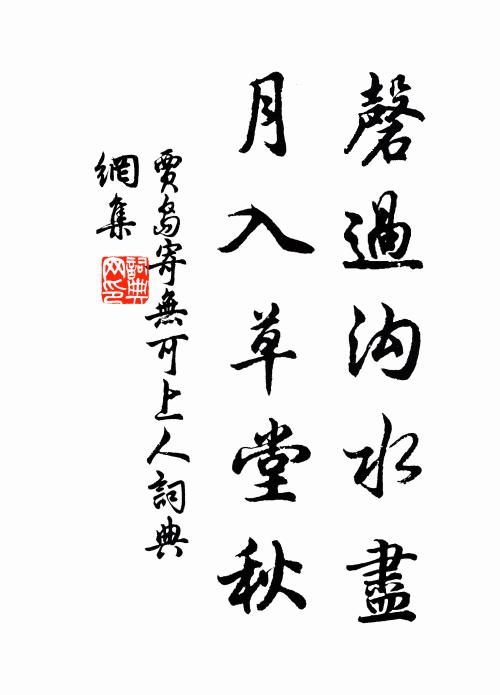 磬過沟水盡
月入草堂秋
賈島寄無可上人詞典
網集
詞典
网印